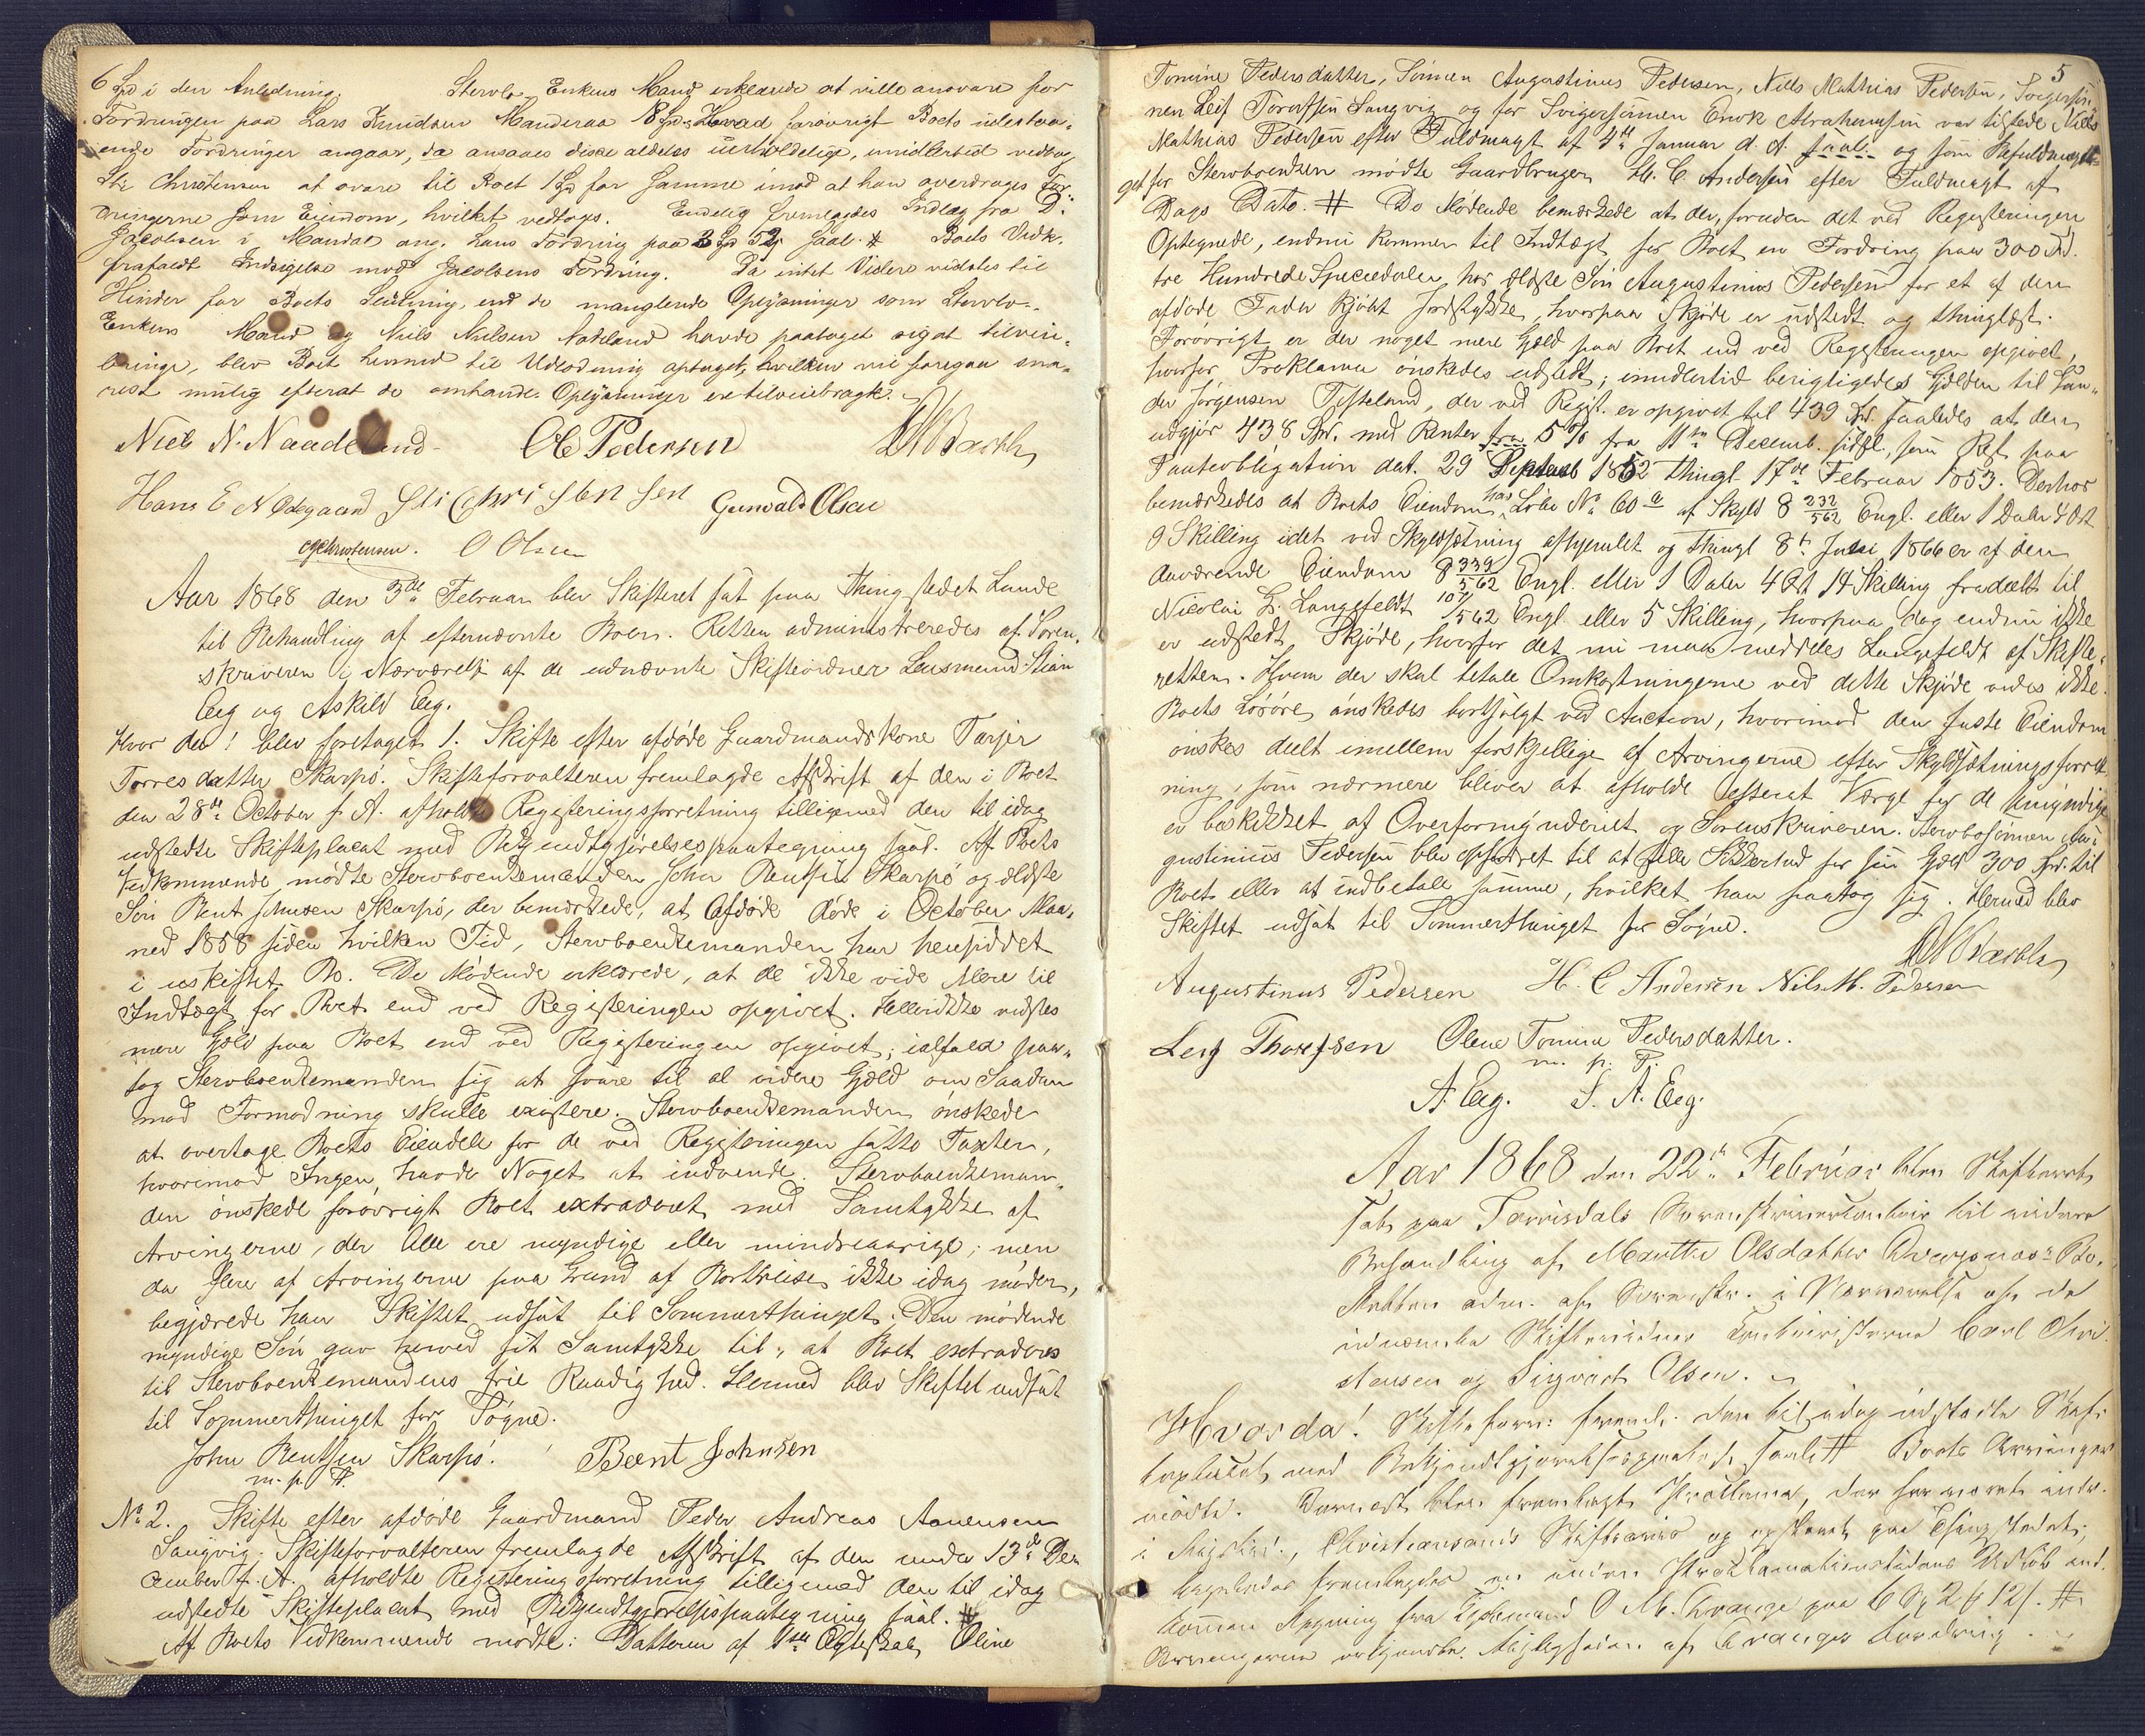 6 Spd i den Anledning. Stervbo Enkens Mand erklærede at ville ansvare for
Fordringen paa Lars Knudsen Manderaa 18 Spd. Hvad forøvrigt Boets udestaa-
ende Fordringer angaar, da ansaaes disse aldeles uerholdelige, imidlertid vedtog
Sti Christensen at svare til Boet 1 Spd for Samme imod at han overdroges For-
dringerne som Eiendom, hvilket vedtoges. Endelig fremlagdes Indlæg fra D.
Jacobsen i Mandal ang. hans Fordring paa 3 Spd saal. # Boets Vedk.
frafaldt Indsigelse mod Jacobsens Fordring. Da intet Videre vidstes til
Hinder for Boets Slutning, end de manglende Oplysninger som Stervbo-
Enkens Mand og Niels Nielsen Nodeland havde paataget sig at tilvei-
bringe, blev Boet hermed til Udlodning optaget, hvilken vil foregaa sna-
rest mulig efterat de omhandl. Oplysninger ere tilveiebragte.
Niels N. Naadeland Ole Pedersen
Hans E Nødegaard Sti Christensen Gunvald Olsen
Christensen. O Olsen
Aar 1868 den 3de Februar blev Skifteret sat paa Thingstedet Lunde
til Behandling af efternævnte Boer. Retten administreredes af Soren-
skriveren i Nærværelse af de udnævnte Skiftevidner Lensmand Stian
Eeg og Askild Eeg.
Hvor da! blev foretaget 1. Skifte efter afdøde Gaardmandskone Tarjer
Torresdatter Skarpø. Skifteforvalteren fremlagde Afskrift af den i Boet
den 28de October f. A. afholdte Registeringsforretning tilligemed den til idag
udstedte Skifteplacat med Bekjendtgjørelsespaategning saal. Af Boets
Vedkommende mødte Stervboenkemanden John Bentsen Skarpø og ældste
Søn Bent Johnsen Skarpø, der bemærkede, at Afdøde døde i October Maa-
ned 1858 siden hvilken Tid, Stervboenkemanden har hensiddet
i uskiftet Bo. De Mødende erklærede, at de ikke vide Mere til
Indtægt for Boet end ved Registeringen opgivet. Hellerikke vidstes
mere Gjæld paa Boet end ved Registeringen opgivet; ialfald paa-
tog Stervboenkemanden sig at svare til al videre Gjæld om Saadan
mod Formodning skulle existere. Stervboenkemanden ønskede
at overtage Boets Eiendele for de ved Registeringen satte Taxter,
hvorimod Ingen havde Noget at indvende. Stervboenkeman-
den ønskede forøvrigt Boet extraderet med Samtykke af
Arvingerne, der Alle ere myndige eller mindreaarige; men
da flere af Arvingerne paa Grund af Bortreise ikke idag møder,
begjærede han Skiftet udsat til Sommerthinget. Den mødende
myndige Søn gav herved sit Samtykke til, at Boet extraderes
til Stervboenkemandens frie Raadighed. Hermed blev Skiftet udsat
til Sommerthinget for Søgne.
John Bentsen Skarpø. Bent Johnsen
m. p. P.
No 2. Skifte efter afdøde Gaardmand Peder Andreas Aanensen
Langvig. Skifteforvalteren fremlagde Afskrift af den under 13de De-
cember f. A. afholdte Registeringsforretning tilligemed den til idag
udstedte Skifteplacat med Bekjendtgjørelsespaategning saal. #
Af Boets Vedkommende mødte: Datteren af 1ste Ægteskab, Oline
5
Tomine Pedersdatter, Sønnen Augustinus Pedersen, Niels Mathias Pedersen, Svigersøn-
nen Leif Torersen Langvig og for Svigersønnen Enok Abrahamsen var tilstede Niels
Mathias Pedersen efter Fuldmagt af 4de Januar d. A. saal. og som Befuldmægti-
get for Stervboenken mødte Gaardbruger H. C. Andersen efter Fuldmagt af
Dags Dato. # De Mødende bemærkede at der, foruden det ved Registeringen
Optegnede, endnu kommer til Indtægt for Boet en Fordring paa 300 Spd.
tre Hundrede Speciedaler, hos ældste Søn Augustinus Pedersen for et af den
afdøde Fader kjøbt Jordstykke, hvorpaa Skjøde er udstedt og thinglæst.
Forøvrigt er der noget mere Gjæld paa Boet end ved Registeringen opgivet,
hvorfor Proklama ønskedes udstedt; imidlertid berigtigedes Gjælden til
Jørgensen Tofteland, der ved Regist. er opgivet til 439 Spd. saaledes at den
udgjør 438 Spd. med Renter 5% fra 11te Decemb. sidstl., som Rest paa
Panteobligation dat. 29 Septemb 1852 thingl. 17de Februar 1853. Derhos
bemærkedes at Boets Eiendom har Løbe No 60a af Skyld 8 232/562 Engl. eller 1 Daler 4 Ort
9 Skilling idet ved Skyldsætning afhjemlet og thingl 8de Juni 1866 er af den
daværende Eiendom 8 339/562 Engl. eller 1 Daler 4 Ort 14 Skilling fradeelt til
Nicolai G. Langefeldt 107/562 Engl. eller 5 Skilling, hvorpaa dog endnu ikke
er udstedt Skjøde, hvorfor det nu maa meddeles Langefeldt af Skifte-
retten. Hvem der skal betale Omkostningerne ved dette Skjøde vides ikke.
Boets Løsøre ønskedes bortsolgt ved Auction, hvorimod den faste Eiendom
ønskes deelt imellem forskjellige af Arvingerne efter Skyldsætningsforret-
ning, som nærmere bliver at afholde efterat Værge for de Umyndige
er beskikket af Overformynderiet og Sorenskriveren. Stervbosønnen Au-
gustinus Pedersen blev opfordret til at stille Sikkerhed for sin Gjæld 300 Spd. til
Boet eller at indbetale samme, hvilket han paatog sig. Hermed blev
Skiftet udsat til Sommerthinget for Søgne.
Augustinus Pedersen H. C Andersen Nils M. Pedersen
Leif Thorersen Olene Tomine Pedersdatter.
m. p. P.
A. Eeg. S. A. Eeg.
Aar 1868 den 22de Februar blev Skifteret
sat paa Torrisdals Sorenskrivercontoir til videre
Behandling af Marthe Olsdatter Boe.
Retten adm. af Sorenskr. i Nærværelse af de
udnævnte Skiftevidner Contoiristerne Carl Chri-
stensen og Sigvart Olsen.
Hvor da! Skifteforv: freml. den til idag udstedte Skif-
teplacat med Bekjendtgjørelsespaategn. saal. # Boets Arvinger
mødte. Dernæst blev fremlagt Proklama, der har været indr.
i Rigstid., Christianssands Stiftsavis og opslaaet paa Thingstedet;
ligeledes fremlagdes en inden Proklamationstidens Udløb ind-
kommen Regning fra O. M. Qvange paa 6 Spd 2 12 s. #
Arvingerne af Fordring